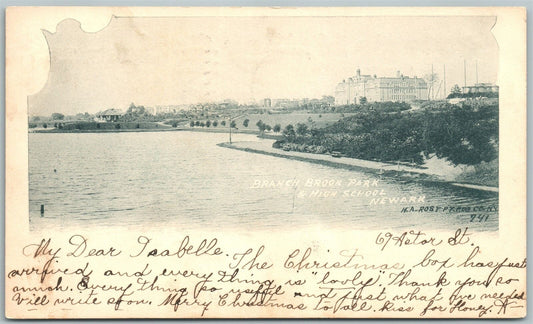 BRANCH BROOK PARK
& HIGH SCHOOL
NEWARK
H.A. ROST PT. PUB CO. N.Y.
741
69 Astor St.
My Dear Isabelle. The Christmas box has just
arrived and every thing is "lovly" Thank you so
much. Every thing so useful and just what we needed
Will write soon. Merry Christmas to all. Kiss for